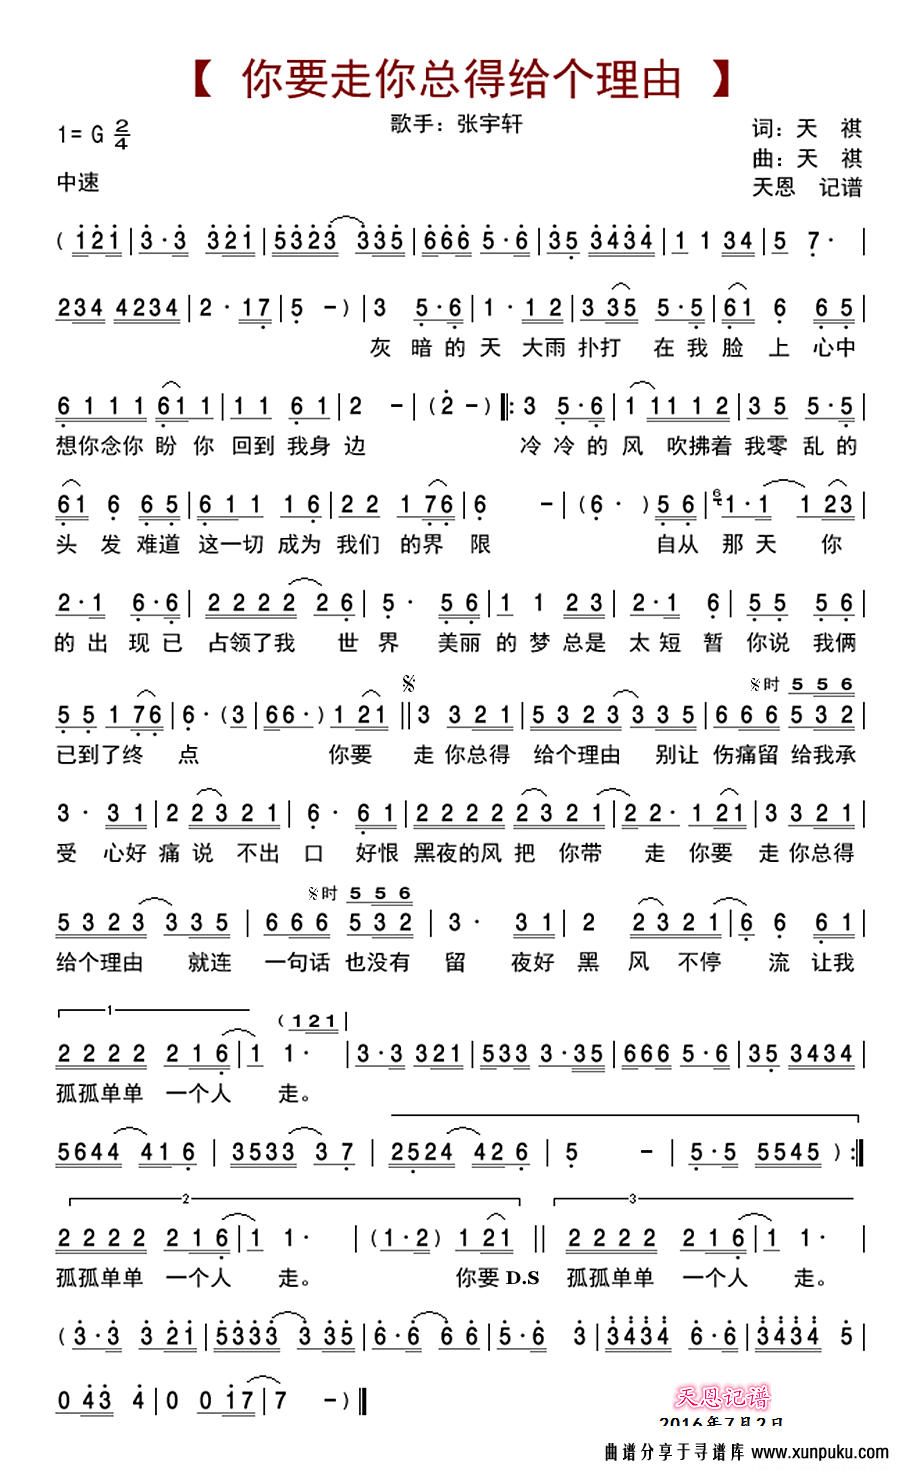 【 你要走你总得给个理由 】
歌手：张宇轩
1= G 2/4
词：天 祺
曲：天 祺
中速
天恩 记谱
( 121 | 3 · 3 321 | 5323 335 | 666 5 · 6 | 35 3434 | 1 1 34 | 5 7 · |
234 4234 | 2 · 17 | 5 – ) | 3 5 · 6 | 1 · 12 | 3 35 5 · 5 | 61 6 65 |
灰 暗 的 天 大雨 扑打 在 我 脸 上 心中
6 1 1 1 61 1 | 1 1 6 1 | 2 – | ( 2 – ) ‖: 3 5 · 6 | 1 11 1 2 | 3 5 5 · 5 |
想你念你 盼 你 回到 我身 边 冷 冷 的 风 吹拂着 我零 乱的
61 6 65 | 6 1 1 1 6 | 2 2 1 76 | 6 – | ( 6 · ) 5 6 | 6 1 · 1 1 23 |
头 发 难道 这一切 成为 我们 的界 限 自从 那 天 你
2 · 1 6 · 6 | 2 2 2 2 2 6 | 5 · 5 6 | 1 1 2 3 | 2 · 1 6 | 5 5 5 6 |
的 出 现 已 占领了我 世 界 美丽 的 梦 总是 太 短 暂 你说 我俩
𝄋时 5 5 6
5 5 1 76 | 6 · (3 | 66 · ) 1 21 ‖ 3 3 2 1 | 5 3 2 3 3 3 5 | 6 6 6 5 3 2 |
已到了终 点 你要 走 你总得 给个理由 别让 伤痛留 给我承
3 · 3 1 | 2 2 3 2 1 | 6 · 6 1 | 2 2 2 2 2 3 2 1 | 2 2 · 1 21 | 3 3 2 1 |
受 心好 痛 说 不出 口 好恨 黑夜的风 把 你带 走 你要 走 你总得
𝄋时 5 5 6
5 3 2 3 3 3 5 | 6 6 6 5 3 2 | 3 · 3 1 | 2 2 3 2 1 | 6 6 6 1 |
给个理由 就连 一句话 也没有 留 夜好 黑 风 不停 流 让我
1
( 1 2 1 |
2 2 2 2 2 1 6 | 1 1 · | 3 · 3 321 | 533 3 · 35 | 666 5 · 6 | 35 3434 |
孤孤单单 一个人 走。
5644 41 6 | 3533 3 7 | 2524 42 6 | 5 – | 5 · 5 5545 ) :‖
2 3
2 2 2 2 2 1 6 | 1 1 · | ( 1 · 2 ) 1 21 ‖ 2 2 2 2 2 1 6 | 1 1 · |
孤孤单单 一个人 走。 你要 D.S 孤孤单单 一个人 走。
( 3 · 3 3 21 | 5333 3 35 | 6 · 6 6 6 | 5 · 6 3 | 3434 6 · 6 | 3434 5 |
0 43 4 | 0 0 17 | 7 – ) ‖
天恩记谱
2016年7月2日
曲谱分享于寻谱库 www.xunpuku.com